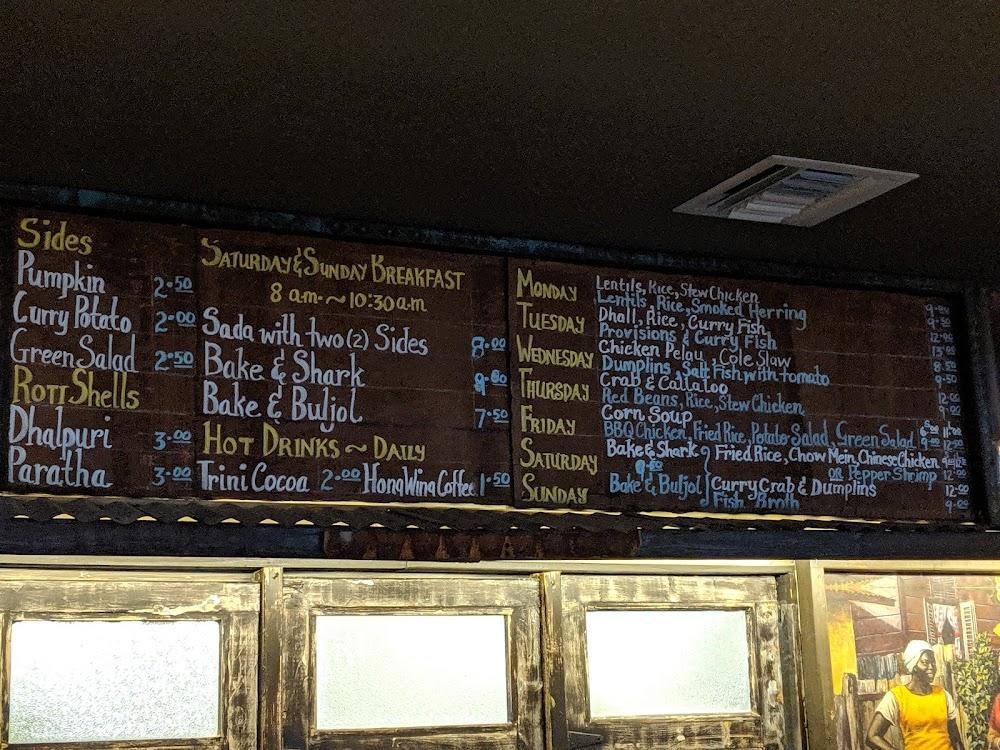 Sides
Pumpkin 2.50
Curry Potato 2.00
Green Salad 2.50
Roti Shells
Dhalpuri 3.00
Paratha 3.00
SATURDAY & SUNDAY BREAKFAST
8 am. ~ 10:30 am
Sada with two (2) Sides 8.00
Bake & Shark
Bake & Buljol 7.50
HOT DRINKS ~ DAILY
Trini Cocoa 2.00 Hong Wing Coffee 1.50
MONDAY
Lentils, Rice, Stew Chicken
Lentils, Rice, Smoked Herring
TUESDAY
Dhall, Rice, Curry Fish
Provisions & Curry Fish
WEDNESDAY
Chicken Pelau, Cole Slaw
Dumplins, Salt Fish with tomato
THURSDAY
Crab & Callaloo
Red Beans, Rice, Stew Chicken
FRIDAY
Corn Soup
BBQ Chicken, Fried Rice, Potato Salad, Green Salad
SATURDAY
Bake & Shark Fried Rice, Chow Mein, Chinese Chicken
OR Pepper Shrimp
SUNDAY
Bake & Buljol Curry Crab & Dumplins 12.00
Fish Broth 9.00